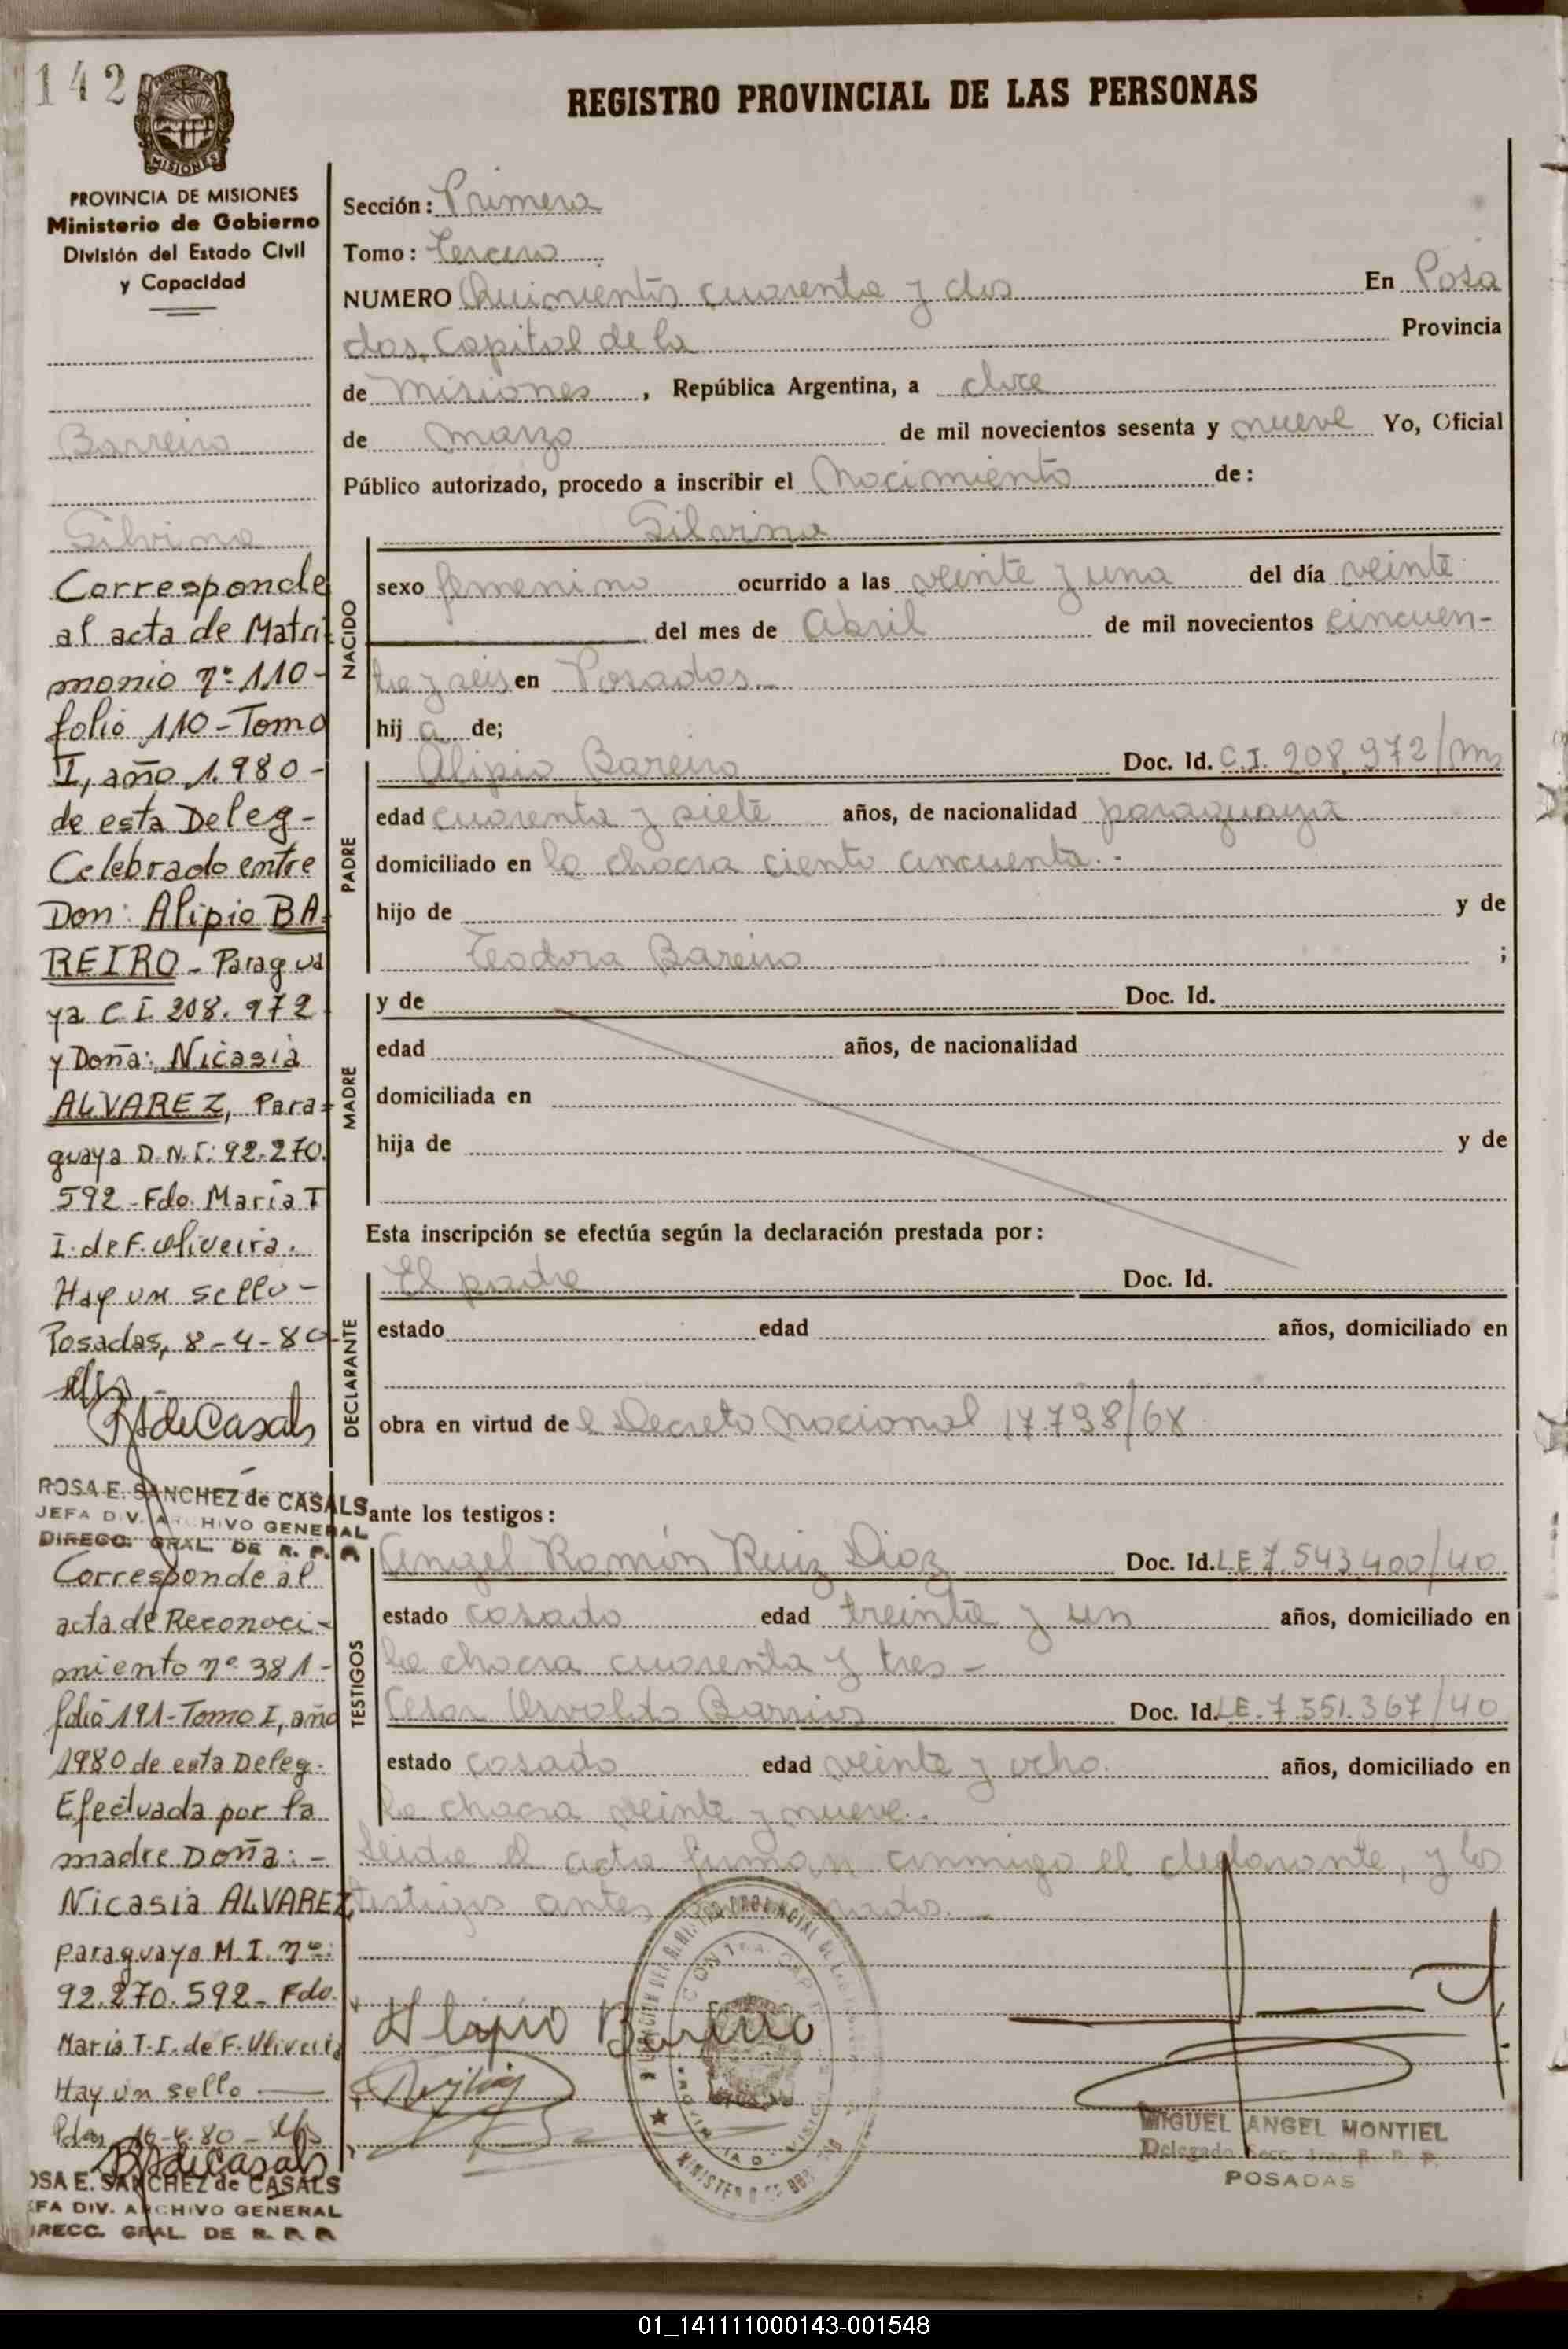 142
PROVINCIA DE MISIONES
MISIONES
PROVINCIA DE MISIONES
Ministerio de Gobierno
División del Estado Civil
y Capacidad
Barreiro
Silvina
Corresponde
al acta de Matri-
monio nº 110-
folio 110-Tomo
I, año 1.980-
de esta Deleg-
Celebrado entre
Don: Alipio BA-
REIRO- Paragua
ya C.I. 208.972
y Doña: Nicasia
ALVAREZ, Para-
guaya D.N.I: 92.270.
592-Fdo. María T
I. de F. Oliveira.
Hay un sello-
Posadas, 8-4-80
RSdeCasals
ROSA E. SANCHEZ de CASALS
JEFA DIV. ARCHIVO GENERAL
DIRECC. GRAL. DE R. P. P.
Corresponde al
acta de Reconoci-
miento nº 381-
folio 191-Tomo I, año
1980 de esta Deleg.
Efectuada por la
madre Doña:-
Nicasia ALVAREZ,
paraguaya M.I. nº:
92.270.592- Fdo.
María T.I. de F. Oliveira
Hay un sello
Pdas, 16-4-80-
RSdeCasals
OSA E. SANCHEZ de CASALS
EFA DIV. ARCHIVO GENERAL
IRECC. GRAL. DE R. P. P.
REGISTRO PROVINCIAL DE LAS PERSONAS
Sección: Primera
Tomo: tercero
NUMERO Quinientos cuarenta y dos En Posa
das, Capital de la Provincia
de Misiones, República Argentina, a doce
de marzo de mil novecientos sesenta y nueve Yo, Oficial
Público autorizado, procedo a inscribir el Nacimiento de:
Silvina
NACIDO
sexo femenino ocurrido a las veinte y una del día veinte
del mes de Abril de mil novecientos cincuen-
ta y seis en Posadas.-
hij a de;
PADRE
Alipio Bareiro Doc. Id. C.I. 208.972/Ms
edad cuarenta y siete años, de nacionalidad paraguaya
domiciliado en la chacra ciento cincuenta.-
hijo de y de
Teodora Bareiro ;
MADRE
y de Doc. Id.
edad años, de nacionalidad
domiciliada en
hija de y de
Esta inscripción se efectúa según la declaración prestada por:
DECLARANTE
El padre Doc. Id.
estado edad años, domiciliado en
obra en virtud de l Decreto Nacional 17.798/68
ante los testigos:
TESTIGOS
Angel Ramón Ruiz Diaz Doc. Id. L.E 7.543.400/40
estado casado edad treinta y un años, domiciliado en
la chacra cuarenta y tres-
Cesar Osvaldo Barrios Doc. Id. L.E. 7.551.367/40
estado casado edad veinte y ocho. años, domiciliado en
la chacra veinte y nueve.
Leida el acta firman conmigo el declarante, y los
testigos antes
Alapio Bareiro
MIGUEL ANGEL MONTIEL
Delegado Secc. 1ra. R. P. P.
POSADAS
01_141111000143-001548